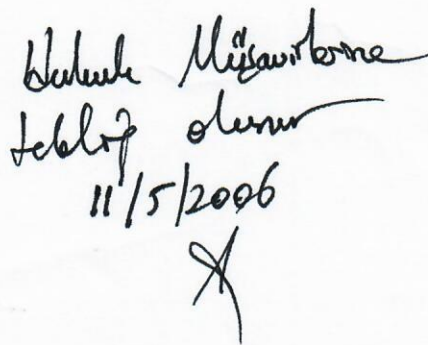 Hukuk Müşavirlerine
tebliğ olunur
11/5/2006